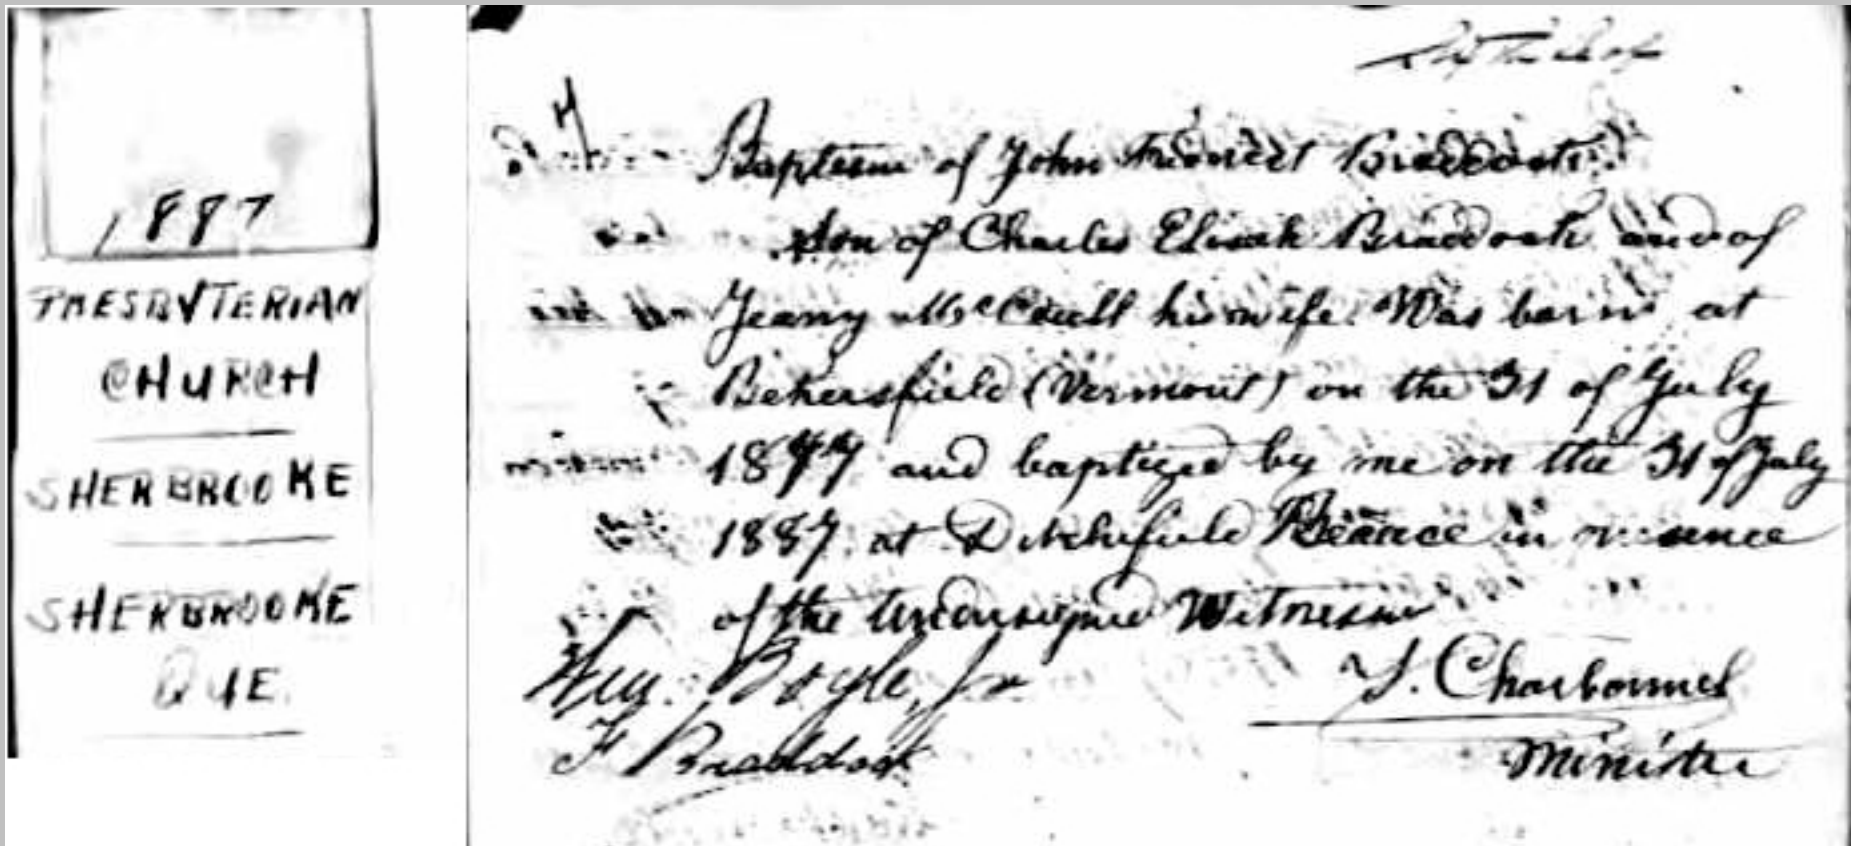 1887
PRESBYTERIAN
CHURCH
SHERBROOKE
SHERBROOKE
QUE.
Baptism of John
Son of Charles Elisah Braddock and of
Jeany McCaull his wife. Was born at
Bekersfield (Vermont) on the 31 of July
1877 and baptized by me on the 31 of July
1887 at Ditchfield Beauce in presence
of the Undersigned Witnesses
Wm. Boyle, Jr.
F Braddock
Charbonnel
Minister